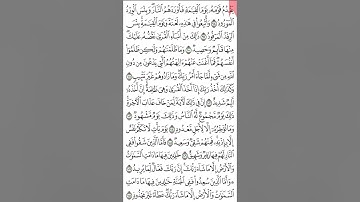 يَقْدُمُ قَوْمَهُۥ يَوْمَ ٱلْقِيَـٰمَةِ فَأَوْرَدَهُمُ ٱلنَّارَ ۖ وَبِئْسَ ٱلْوِرْدُ
ٱلْمَوْرُودُ ۝ وَأُتْبِعُوا۟ فِى هَـٰذِهِۦ لَعْنَةً وَيَوْمَ ٱلْقِيَـٰمَةِ ۚ بِئْسَ
ٱلرِّفْدُ ٱلْمَرْفُودُ ۝ ذَٰلِكَ مِنْ أَنۢبَآءِ ٱلْقُرَىٰ نَقُصُّهُۥ عَلَيْكَ ۖ
مِنْهَا قَآئِمٌ وَحَصِيدٌ ۝ وَمَا ظَلَمْنَـٰهُمْ وَلَـٰكِن ظَلَمُوٓا۟
أَنفُسَهُمْ ۖ فَمَآ أَغْنَتْ عَنْهُمْ ءَالِهَتُهُمُ ٱلَّتِى يَدْعُونَ مِن دُونِ
ٱللَّهِ مِن شَىْءٍ لَّمَّا جَآءَ أَمْرُ رَبِّكَ ۖ وَمَا زَادُوهُمْ غَيْرَ تَتْبِيبٍ ۝
وَكَذَٰلِكَ أَخْذُ رَبِّكَ إِذَآ أَخَذَ ٱلْقُرَىٰ وَهِىَ ظَـٰلِمَةٌ ۚ إِنَّ أَخْذَهُۥٓ
أَلِيمٌ شَدِيدٌ ۝ إِنَّ فِى ذَٰلِكَ لَـَٔايَةً لِّمَنْ خَافَ عَذَابَ ٱلْـَٔاخِرَةِ ۚ
ذَٰلِكَ يَوْمٌ مَّجْمُوعٌ لَّهُ ٱلنَّاسُ وَذَٰلِكَ يَوْمٌ مَّشْهُودٌ ۝
وَمَا نُؤَخِّرُهُۥٓ إِلَّا لِأَجَلٍ مَّعْدُودٍ ۝ يَوْمَ يَأْتِ لَا تَكَلَّمُ نَفْسٌ
إِلَّا بِإِذْنِهِۦ ۚ فَمِنْهُمْ شَقِىٌّ وَسَعِيدٌ ۝ فَأَمَّا ٱلَّذِينَ شَقُوا۟ فَفِى
ٱلنَّارِ لَهُمْ فِيهَا زَفِيرٌ وَشَهِيقٌ ۝ خَـٰلِدِينَ فِيهَا مَا دَامَتِ ٱلسَّمَـٰوَٰتُ
وَٱلْأَرْضُ إِلَّا مَا شَآءَ رَبُّكَ ۚ إِنَّ رَبَّكَ فَعَّالٌ لِّمَا يُرِيدُ ۝
وَأَمَّا ٱلَّذِينَ سُعِدُوا۟ فَفِى ٱلْجَنَّةِ خَـٰلِدِينَ فِيهَا مَا دَامَتِ
ٱلسَّمَـٰوَٰتُ وَٱلْأَرْضُ إِلَّا مَا شَآءَ رَبُّكَ ۖ عَطَآءً غَيْرَ مَجْذُوذٍ ۝